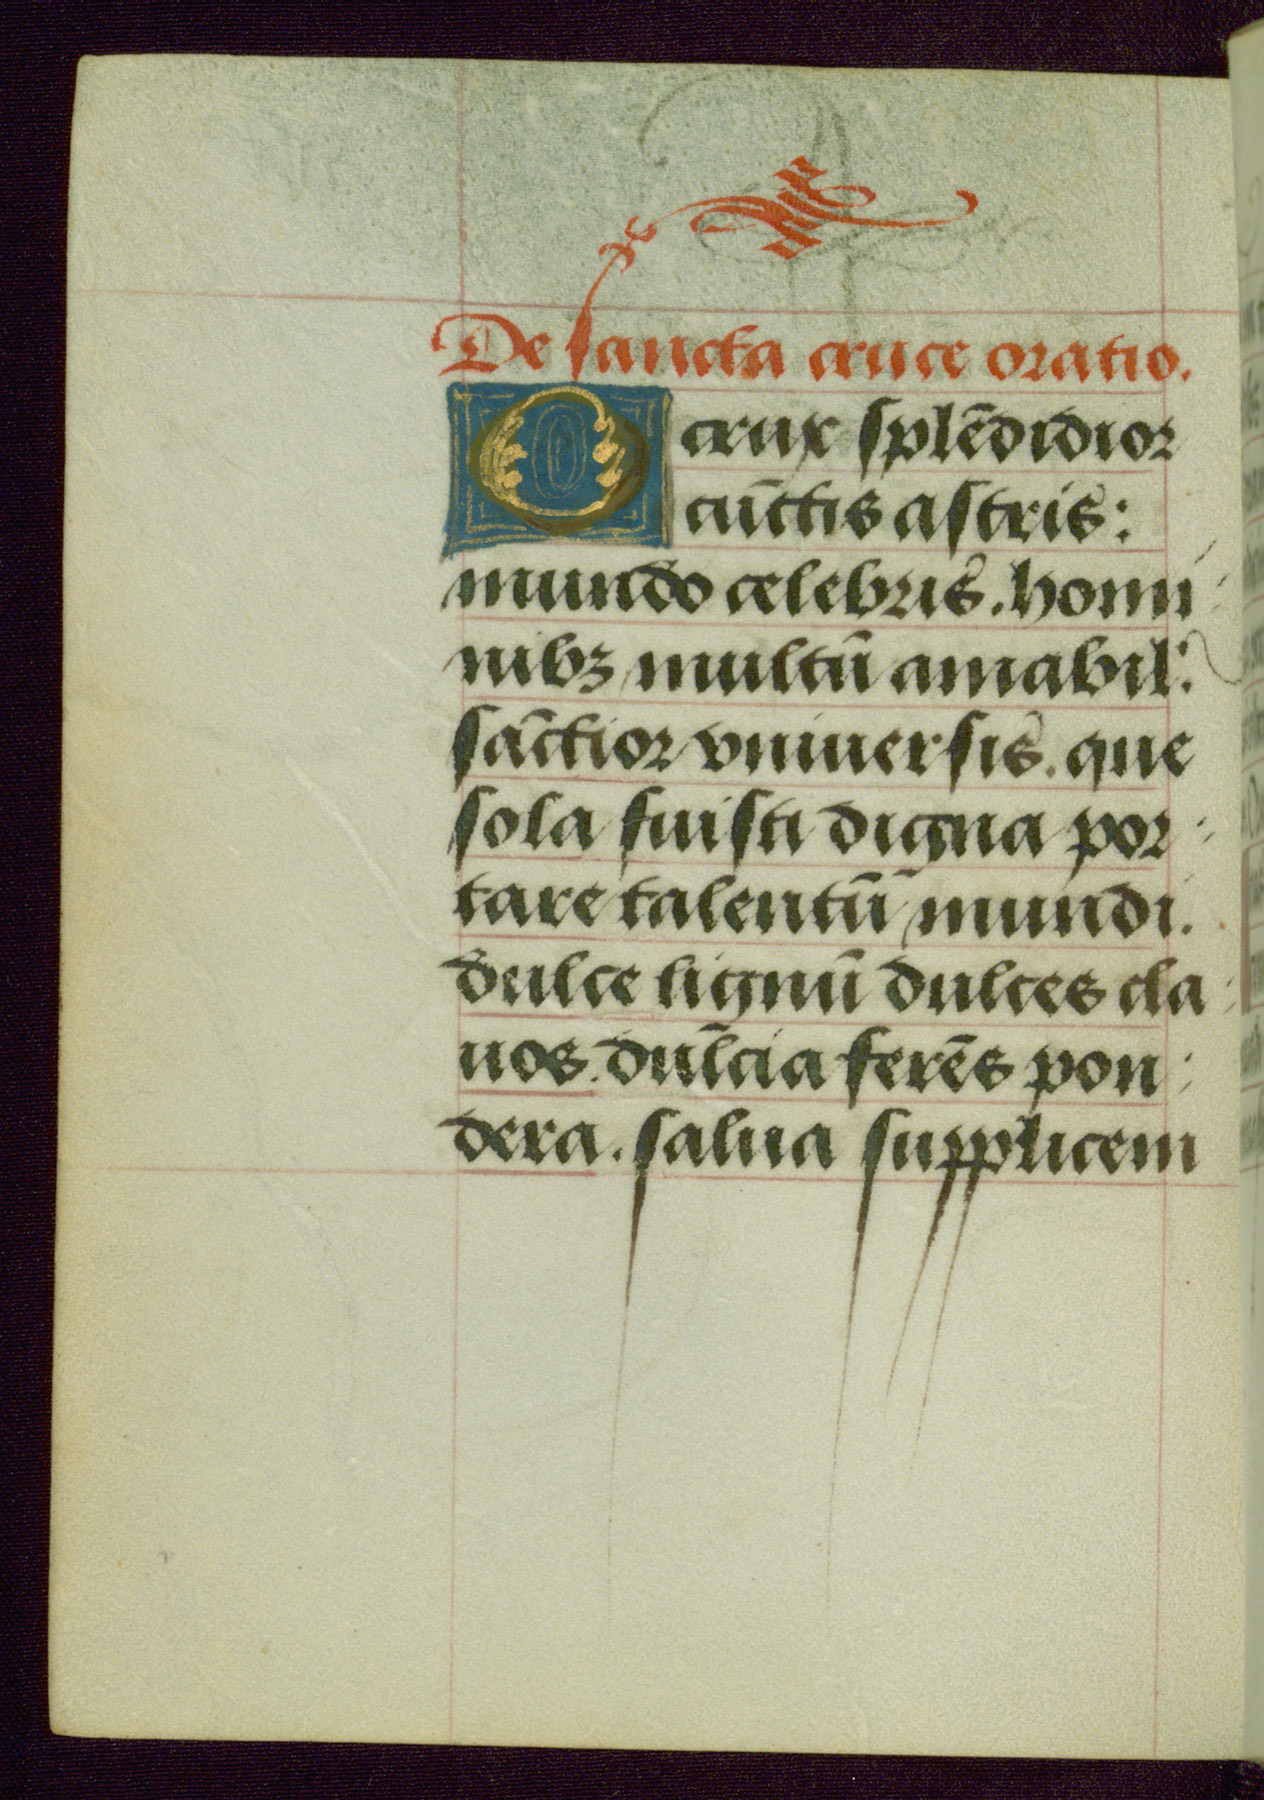 De sancta cruce oratio.
O crux splēdidior
cūctis astris:
mundo celebris. homi
nibꝫ multū amabil':
sāctior vniuersis. que
sola fuisti digna por
tare talentū mundi.
dulce lignū dulces cla
uos. dulcia ferēs pon
dera. salua supplicem